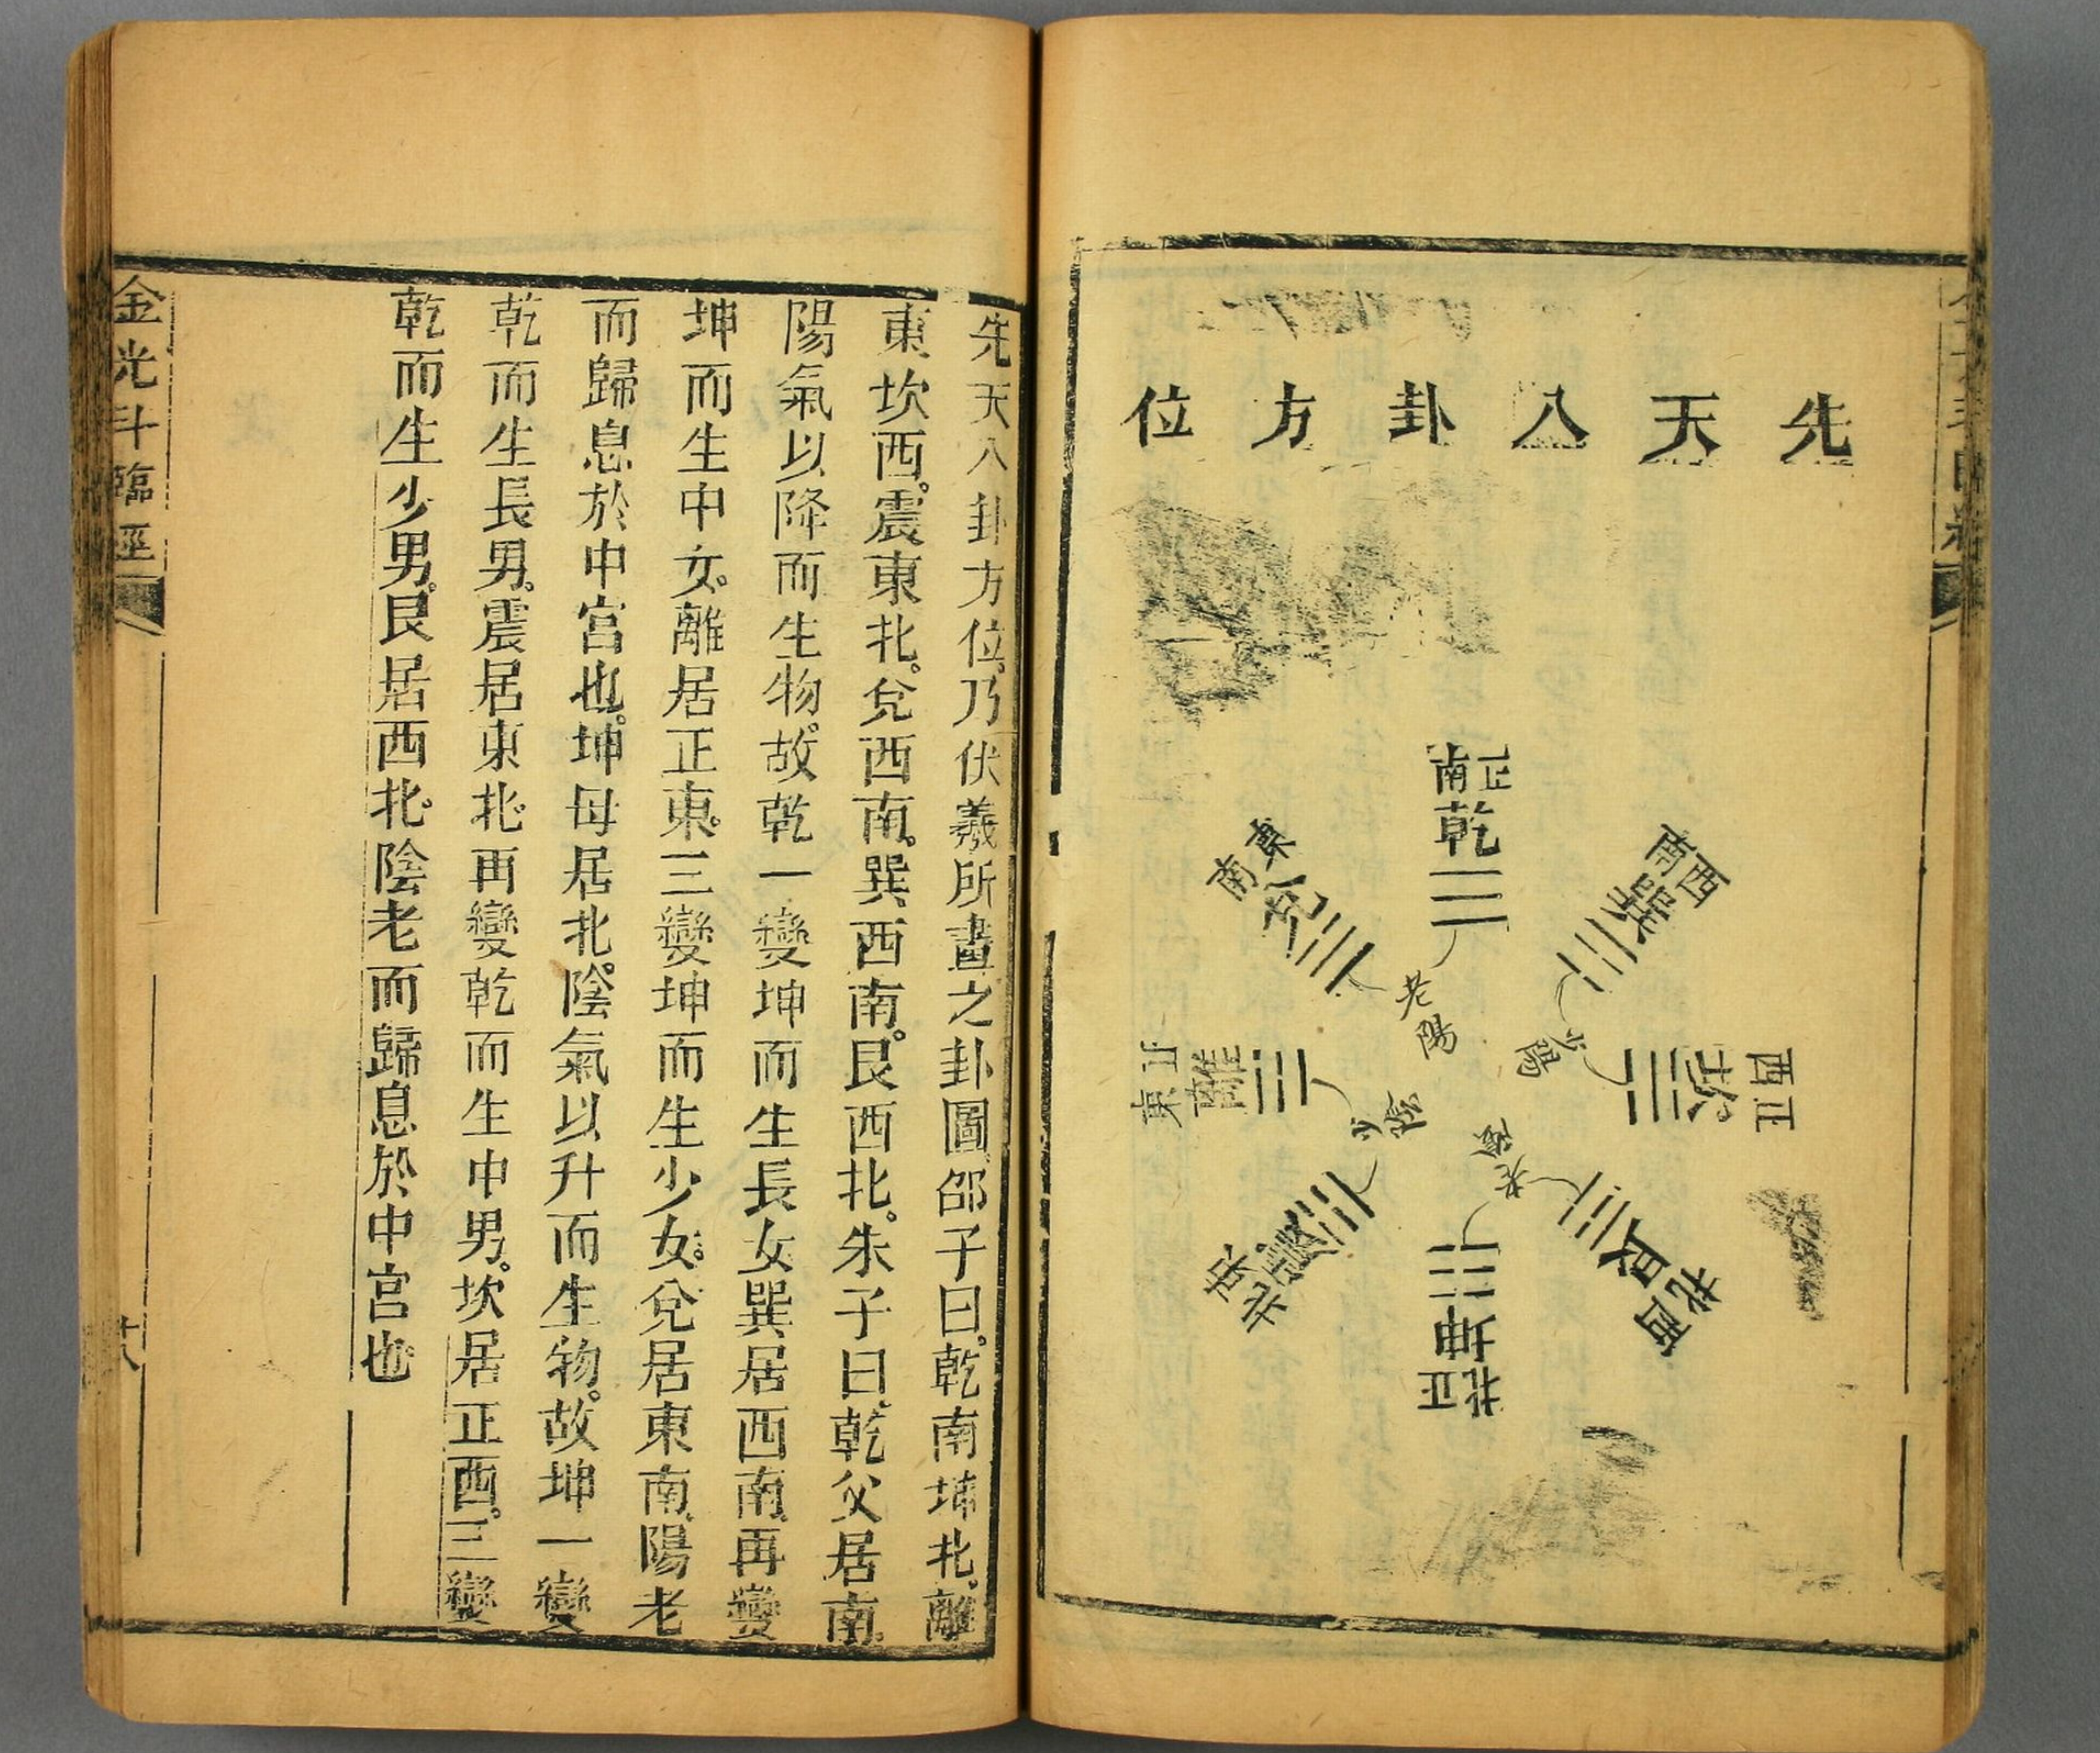 先天八卦方位
正南
乾
西南
巽
西正
坎
西北
艮
正北
坤
東北
震
正東
離
東南
兌
老陽
少陽
少陰
老陰
先天八卦方位。乃伏羲所畫之卦圖邵子曰。乾南坤北。離
東坎西。震東北。兌西南。巽西南。艮西北。朱子曰。乾父居南。
陽氣以降而生物。故乾一變坤而生長女巽居西南。再變
坤而生中女。離居正東。三變坤而生少女。兌居東南。陽老
而歸息於中宮也。坤母居北。陰氣以升而生物。故坤一變
乾而生長男。震居東北。再變乾而生中男。坎居正西。三變
乾而生少男。艮居西北。陰老而歸息於中宮也
金光斗臨經
十八